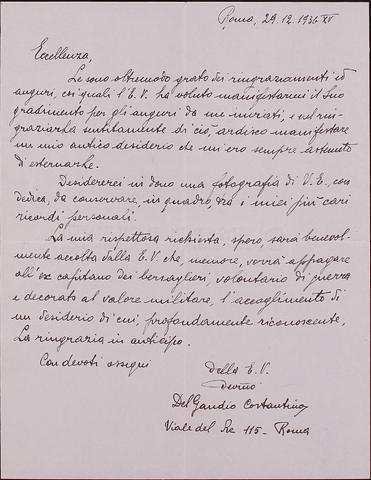 Roma, 29.12.1936 XV
Eccellenza,
Le sono oltremodo grato dei ringraziamenti ed
auguri, coi quali l'E.V. ha voluto manifestarmi il Suo
gradimento per gli auguri da me inviati, e nel rin-
graziarLa sentitamente di ciò, ardisco manifestare
un mio antico desiderio che mi ero sempre astenuto
di esternarLe.
Desidererei in dono una fotografia di V.E., con
dedica, da conservare, in quadro, tra i miei più cari
ricordi personali.
La mia rispettosa richiesta, spero, sarà benevol-
mente accolta dalla E.V. che, memore, vorrà appagare
all'ex capitano dei bersaglieri, volontario di guerra
e decorato al valore militare, l'accoglimento di
un desiderio di cui, profondamente riconoscente,
La ringrazia in anticipo.
Con devoti ossequi
Della E.V.
Dev.mo
Del Gaudio Costantino
Viale del Re 115 - Roma